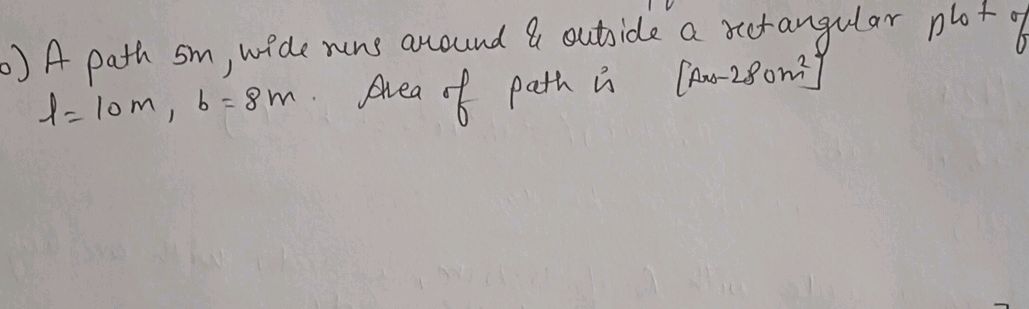 o) A path 5m, wide runs around & outside a rectangular plot of
l = 10m, b = 8m. Area of path is [Ans-280m²]